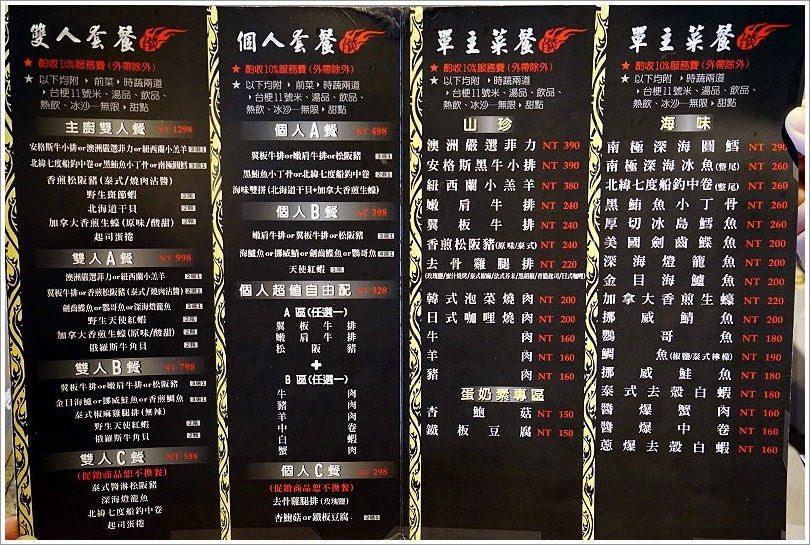 雙人套餐
★ 酌收10%服務費(外帶除外)
★ 以下均附，前菜，時蔬兩道
，台梗11號米、湯品、飲品、
熱飲、冰沙—無限，甜點
主廚雙人餐 NT 1298
安格斯牛小排or澳洲嚴選菲力or紐西蘭小羔羊 3選1
北緯七度船釣中卷or黑鮪魚小丁骨or南極圓鱈 3選1
香煎松阪豬(泰式/燒肉沾醬)
野生斑節蝦 2隻
北海道干貝 2顆
加拿大香煎生蠔(原味/酸甜) 2顆
起司蛋捲
雙人A餐 NT 998
澳洲嚴選菲力or紐西蘭小羔羊 2選1
翼板牛排or香煎松阪豬(泰式/燒肉沾醬) 2選1
劍齒鰈魚or鸚哥魚or深海燈籠魚 3選1
野生天使紅蝦 2隻
加拿大香煎生蠔(原味/酸甜) 2顆
俄羅斯牛角貝 2顆
雙人B餐 NT 798
翼板牛排or嫩肩牛排or松阪豬 3選1
金目海鱸or挪威鮭魚or香煎鯛魚 3選1
泰式椒麻雞腿排(無辣)
野生天使紅蝦 2隻
俄羅斯牛角貝 2顆
雙人C餐 NT 588
(促銷商品恕不換餐)
泰式醬淋松阪豬
深海燈籠魚
北緯七度船釣中卷
起司蛋捲
個人套餐
★ 酌收10%服務費(外帶除外)
★ 以下均附，前菜，時蔬兩道
，台梗11號米、湯品、飲品、
熱飲、冰沙—無限，甜點
個人A餐 NT 498
翼板牛排or嫩肩牛排or松阪豬 3選1
黑鮪魚小丁骨or北緯七度船釣中卷 2選1
海味雙拼(北海道干貝+加拿大香煎生蠔)
個人B餐 NT 398
嫩肩牛排or翼板牛排or松阪豬 3選1
海鱸魚or挪威鯖or劍齒鰈or鸚哥魚 4選1
天使紅蝦 1隻
個人超值自由配 NT 328
A 區(任選一)
翼板牛排
嫩肩牛排
松阪豬
+
B 區(任選一)
牛肉
豬肉
羊肉
中卷
白蝦
蟹肉
個人C餐 NT 298
(促銷商品恕不換餐)
去骨雞腿排(玫瑰鹽)
杏鮑菇or鐵板豆腐 2選1
單主菜餐
★ 酌收10%服務費(外帶除外)
★ 以下均附，前菜，時蔬兩道
，台梗11號米、湯品、飲品、
熱飲、冰沙—無限，甜點
山珍
澳洲嚴選菲力 NT 390
安格斯黑牛小排 NT 390
紐西蘭小羔羊 NT 380
嫩肩牛排 NT 240
翼板牛排 NT 240
香煎松阪豬(原味/泰式) NT 240
去骨雞腿排 NT 220
韓式泡菜燒肉 NT 200
日式咖哩燒肉 NT 200
牛肉 NT 160
羊肉 NT 160
豬肉 NT 160
蛋奶素專區
杏鮑菇 NT 150
鐵板豆腐 NT 150
單主菜餐
★ 酌收10%服務費(外帶除外)
★ 以下均附，前菜，時蔬兩道
，台梗11號米、湯品、飲品、
熱飲、冰沙—無限，甜點
海味
南極深海圓鱈 NT 290
南極深海冰魚(整尾) NT 260
北緯七度船釣中卷(整尾) NT 260
黑鮪魚小丁骨 NT 260
厚切冰島鱈魚 NT 260
美國劍齒鰈魚 NT 200
深海燈籠魚 NT 200
金目海鱸魚 NT 200
加拿大香煎生蠔 NT 220
挪威鯖魚 NT 200
鸚哥魚 NT 180
鯛魚(椒鹽/泰式檸檬) NT 190
挪威鮭魚 NT 180
泰式去殼白蝦 NT 180
醬爆蟹肉 NT 160
醬爆中卷 NT 160
蔥爆去殼白蝦 NT 160